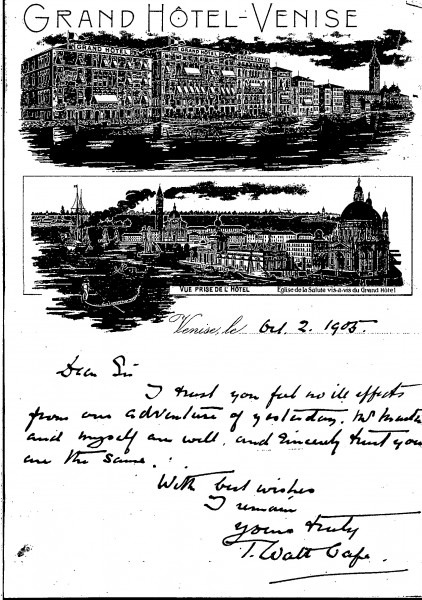 GRAND HÔTEL-VENISE
GRAND HOTEL
GRAND HOTEL
VUE PRISE DE L'HÔTEL
Eglise de la Salute vis-à-vis du Grand Hôtel
Venise, le Oct. 2. 1905.
Dear Sir
I trust you feel no ill effects
from our adventure of yesterday. Mr
and myself are well, and sincerely trust you
are the same.
With best wishes
I remain
Yours truly
T. Watt Cafe.